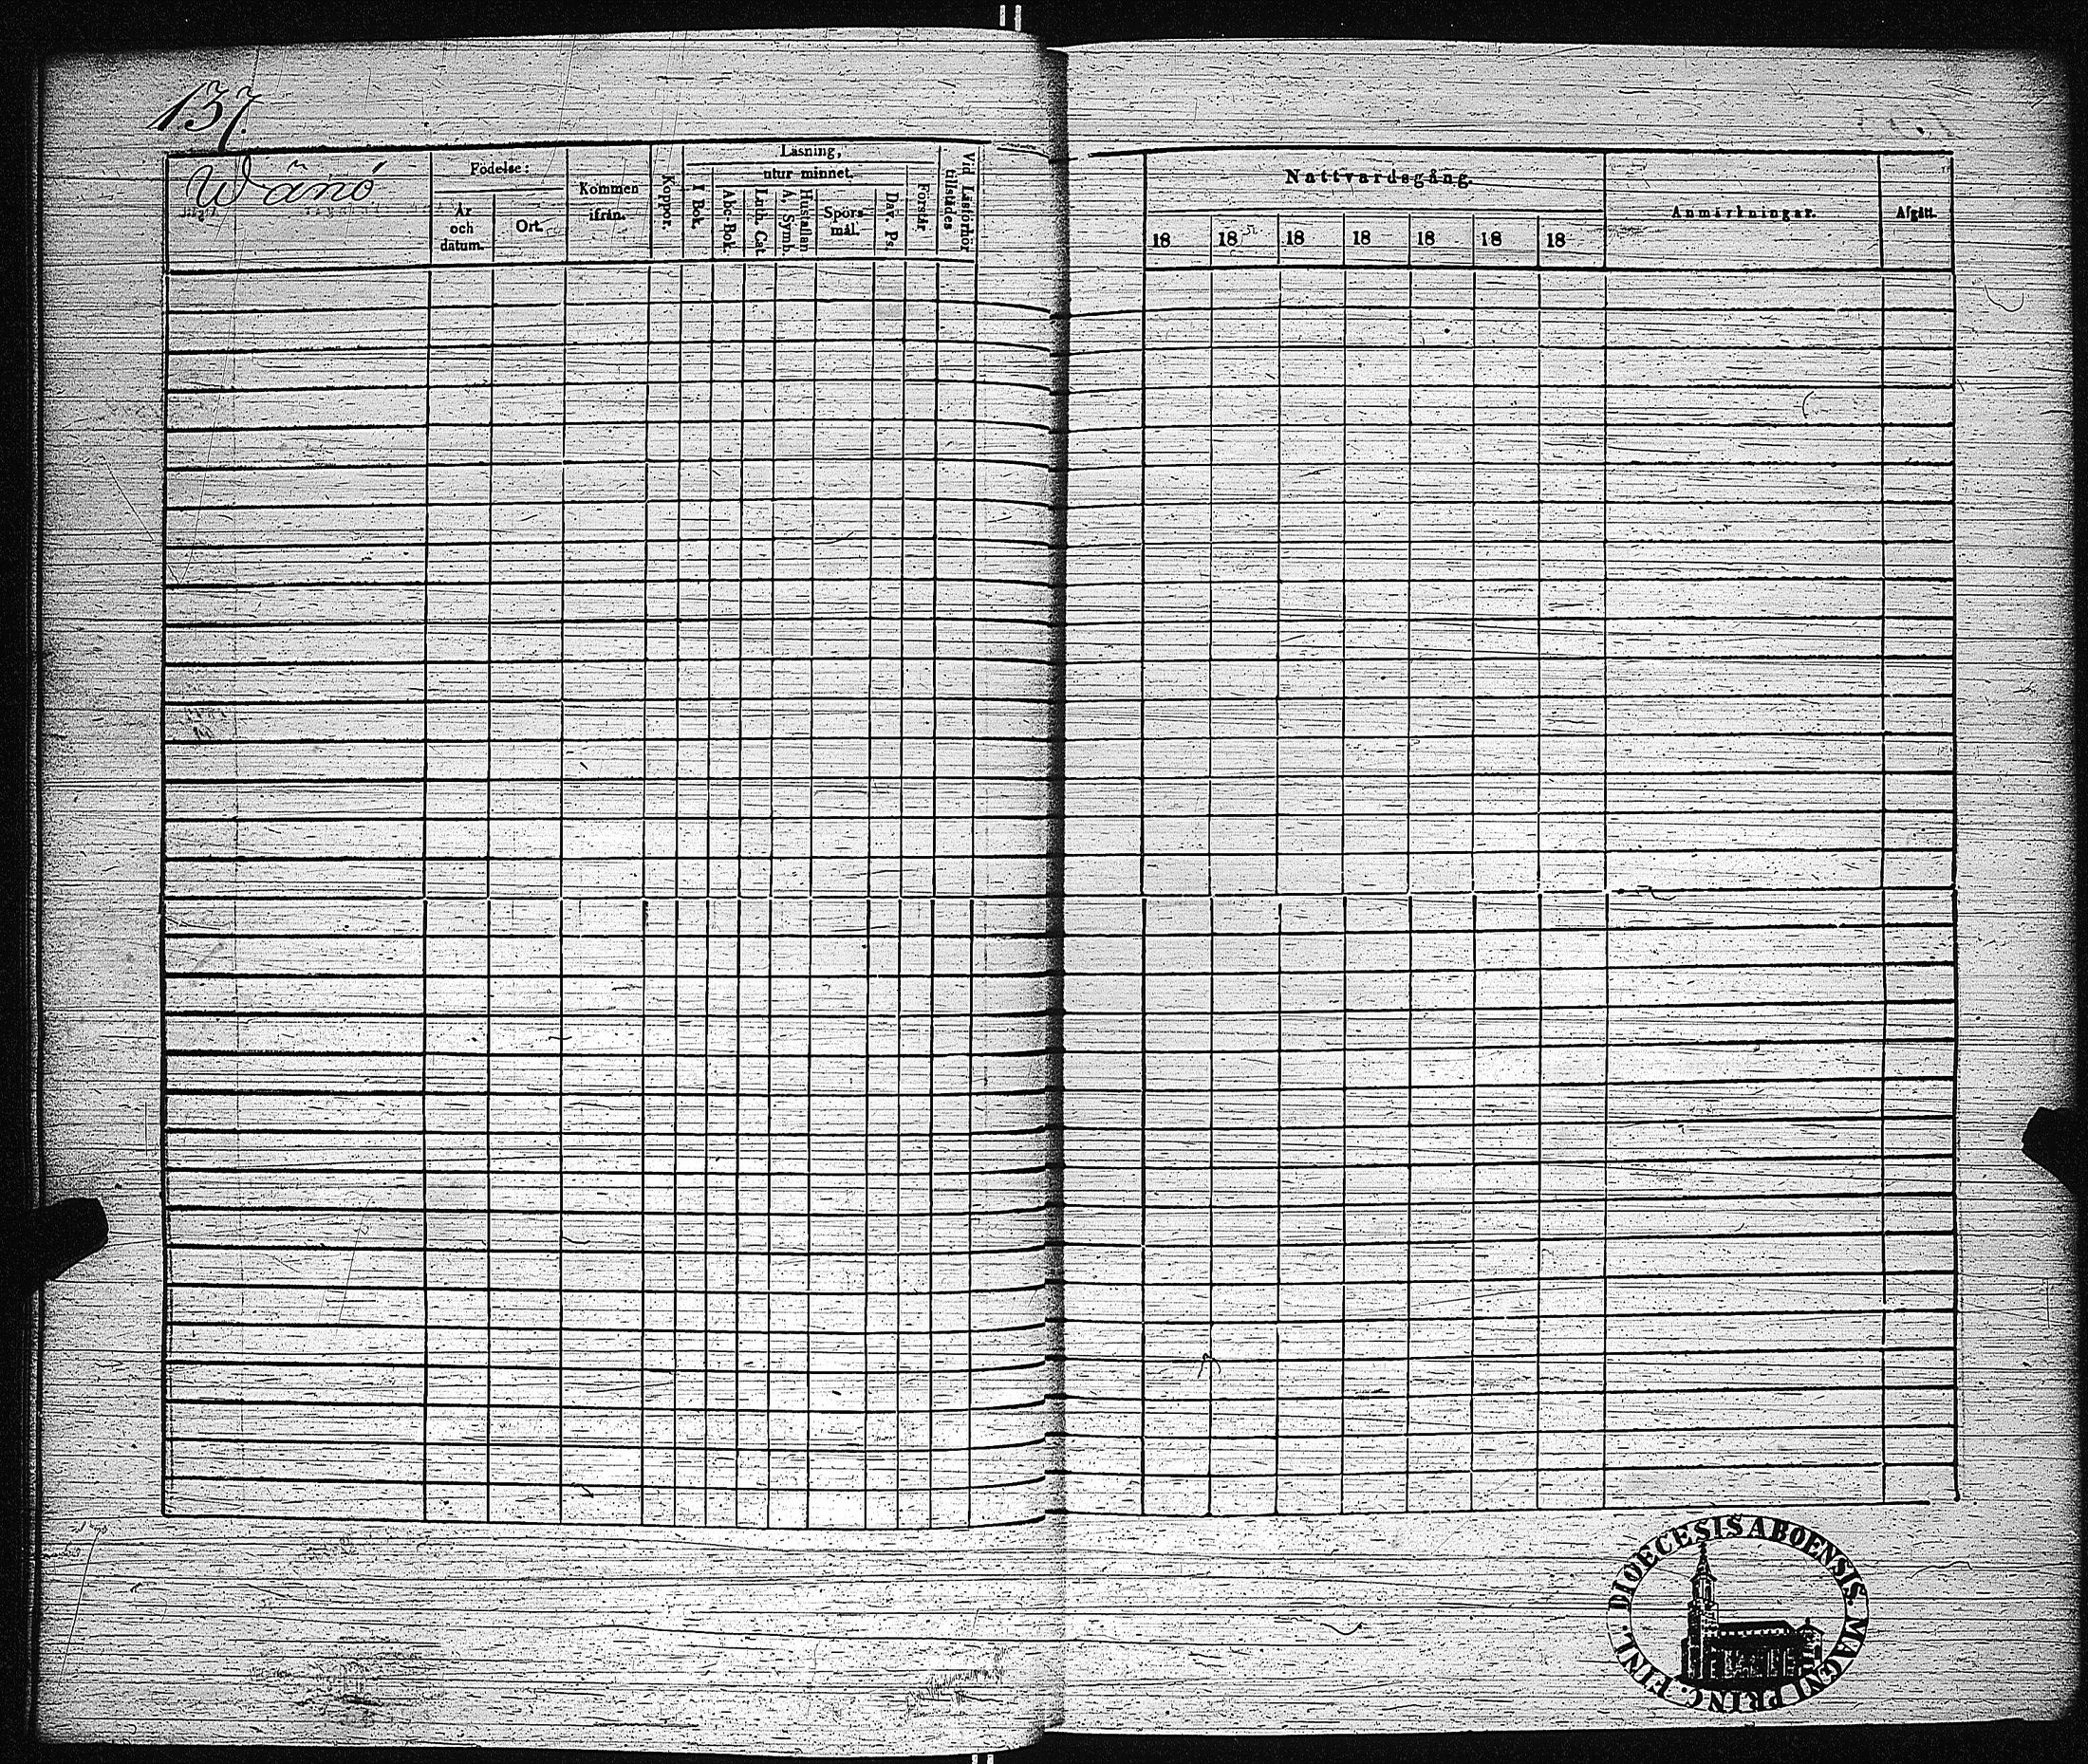 137.
Wånö
Födelse:
År
och
datum.
Ort.
Kommen
ifrån.
Koppor.
Läsning,
utur minnet.
I Bok.
Abc-Bok.
Luth. Cat.
Hustaflan
A. Symb.
Spörs-
mål.
Dav. Ps.
Förstår
Vid Läsförhör
tillstädes
Nattvardsgång.
18 18 18 18 18 18 18
Anmärkningar.
Afgått.
DIOECESIS ABOENSIS. MAGNI PRINC. FINL.